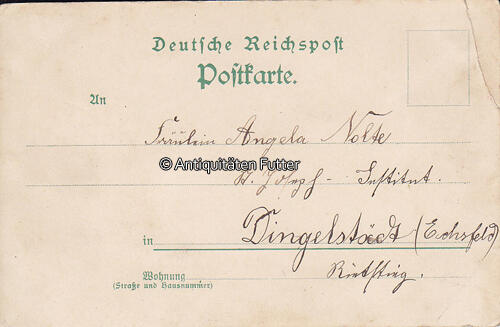 Deutsche Reichspost
Postkarte.
An
Fräulein Angela Nolte
© Antiquitäten Futter
St. Joseph - Institut.
in Dingelstädt (Eichsfeld)
Wohnung
(Straße und Hausnummer)
Rietstieg.